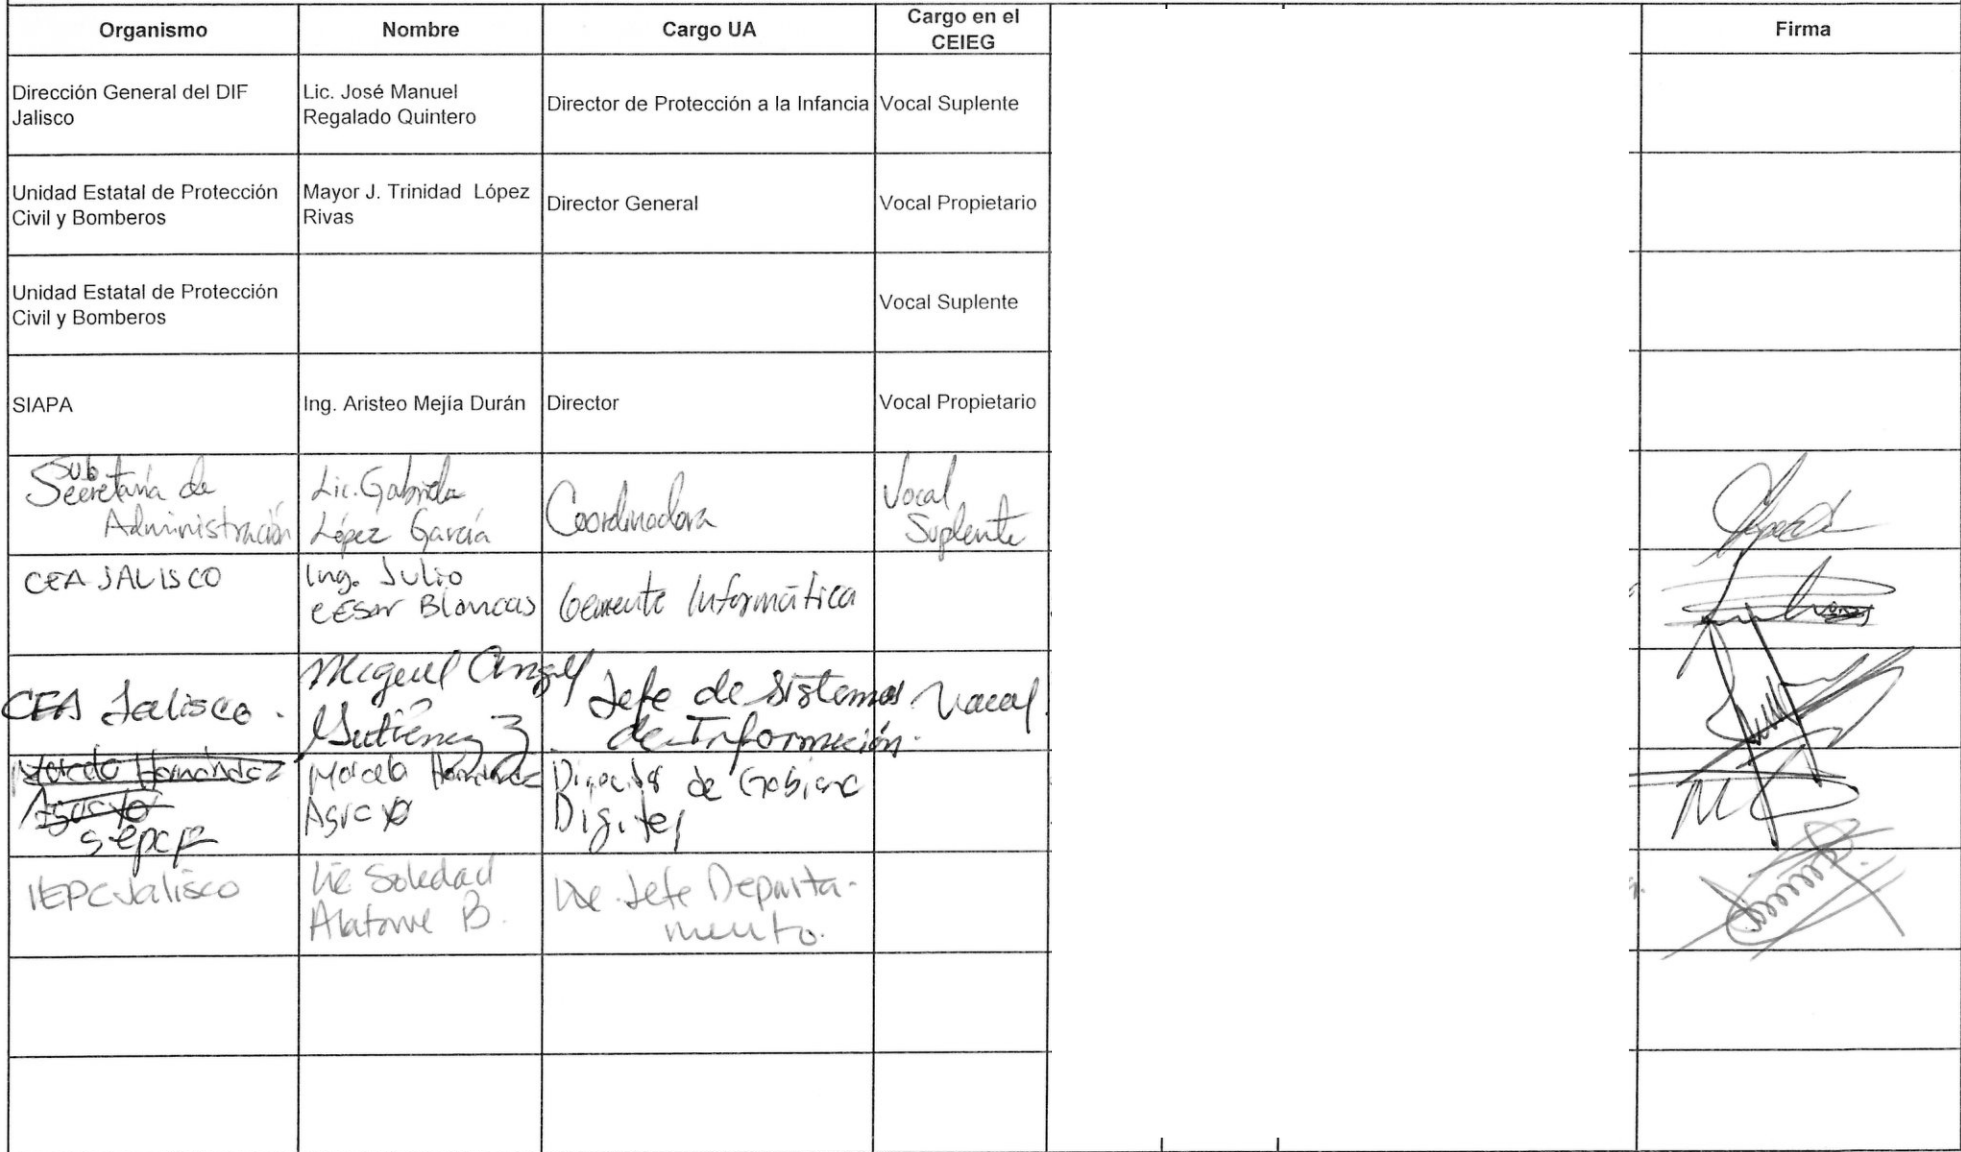 Organismo Nombre Cargo UA Cargo en el CEIEG Firma
Dirección General del DIF Jalisco
Lic. José Manuel Regalado Quintero
Director de Protección a la Infancia
Vocal Suplente
Unidad Estatal de Protección Civil y Bomberos
Mayor J. Trinidad López Rivas
Director General
Vocal Propietario
Unidad Estatal de Protección Civil y Bomberos
Vocal Suplente
SIAPA
Ing. Aristeo Mejía Durán
Director
Vocal Propietario
Sub
Secretaría de
Administración
Lic. Gabriela
López García
Coordinadora
Vocal
Suplente
CEA JALISCO
Ing. Julio
César Blancas
Gerente Informática
CEA Jalisco.
Miguel Angel
Gutiérrez Z.
Jefe de Sistemas
de Información.
Vocal.
Marcela Hernández
sepaf
Marcela Hernández
Director de Gobierno
Digital
IEPC Jalisco
Lic Soledad
Alatorre B.
Jefe Departa-
mento.